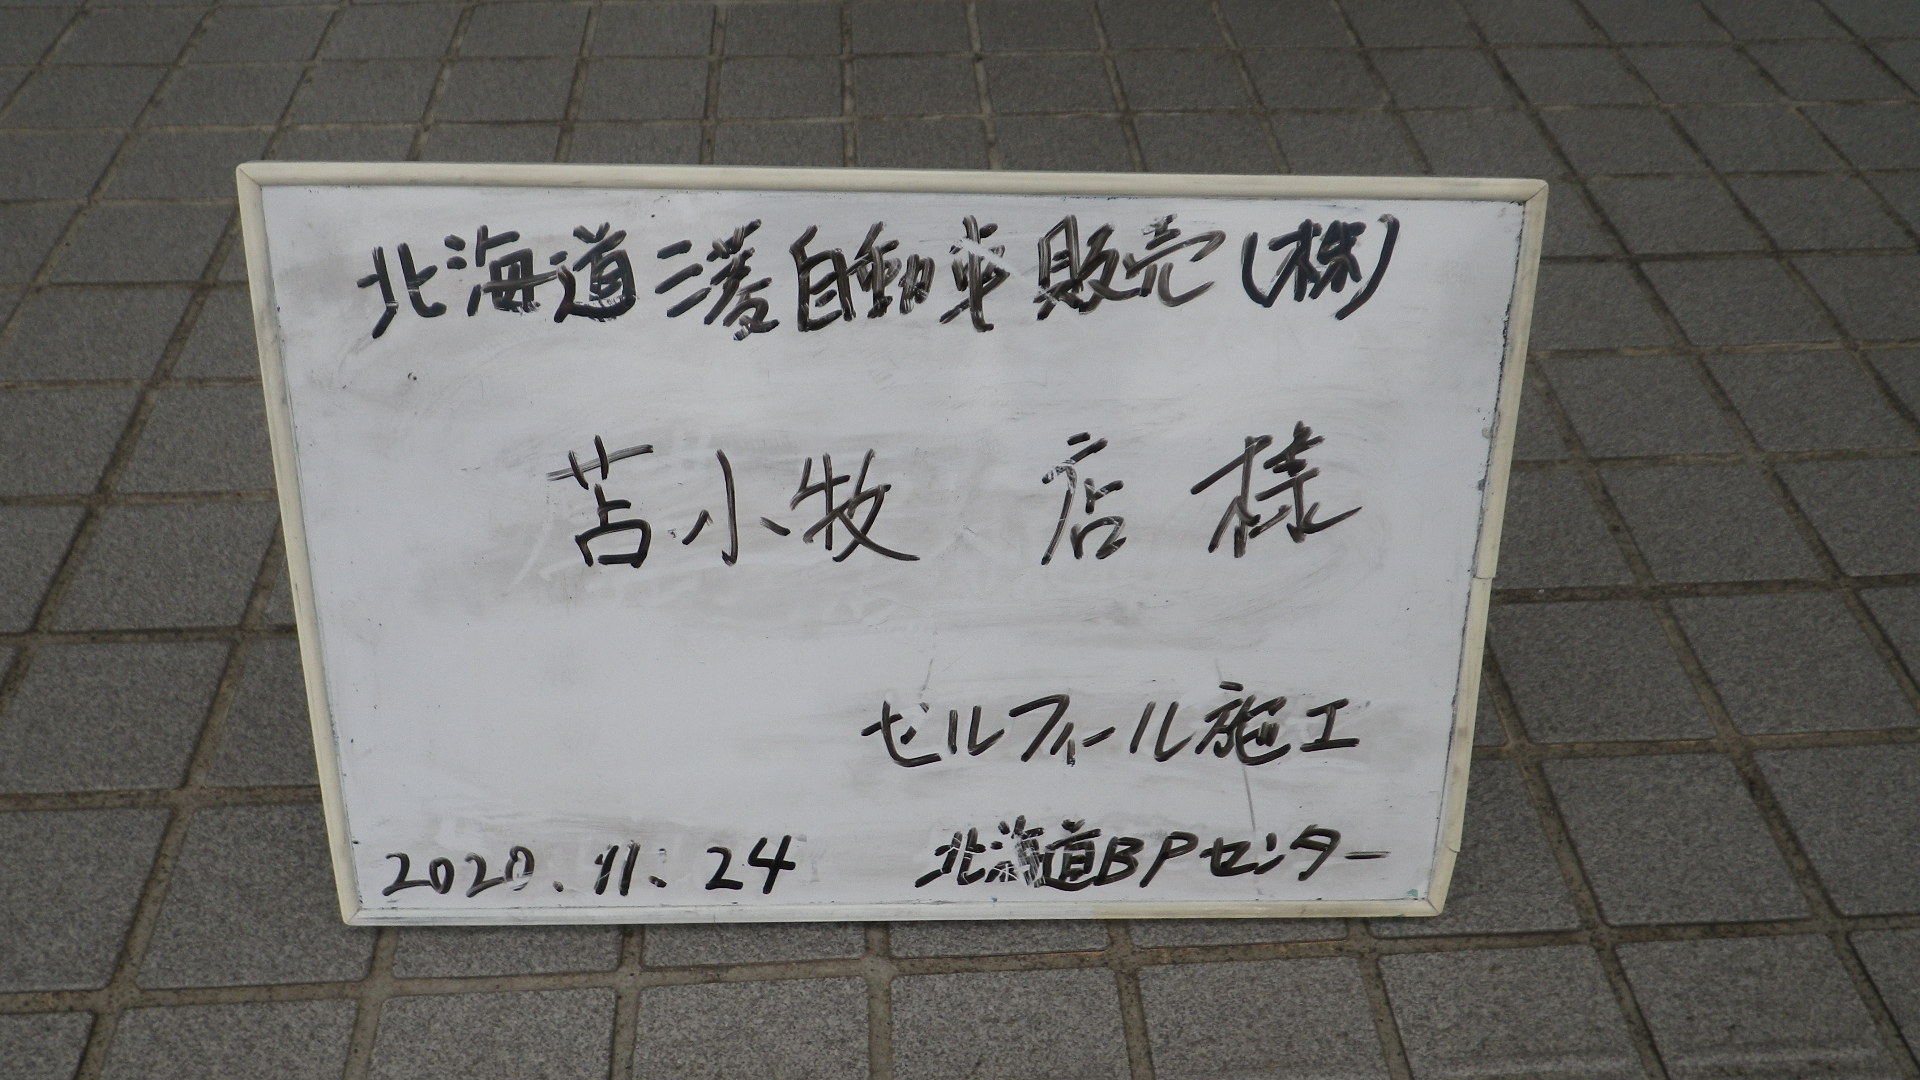 北海道三菱自動車販売(株)
苫小牧 店 様
ゼルフィール施工
2020.11.24 北海道BPセンター